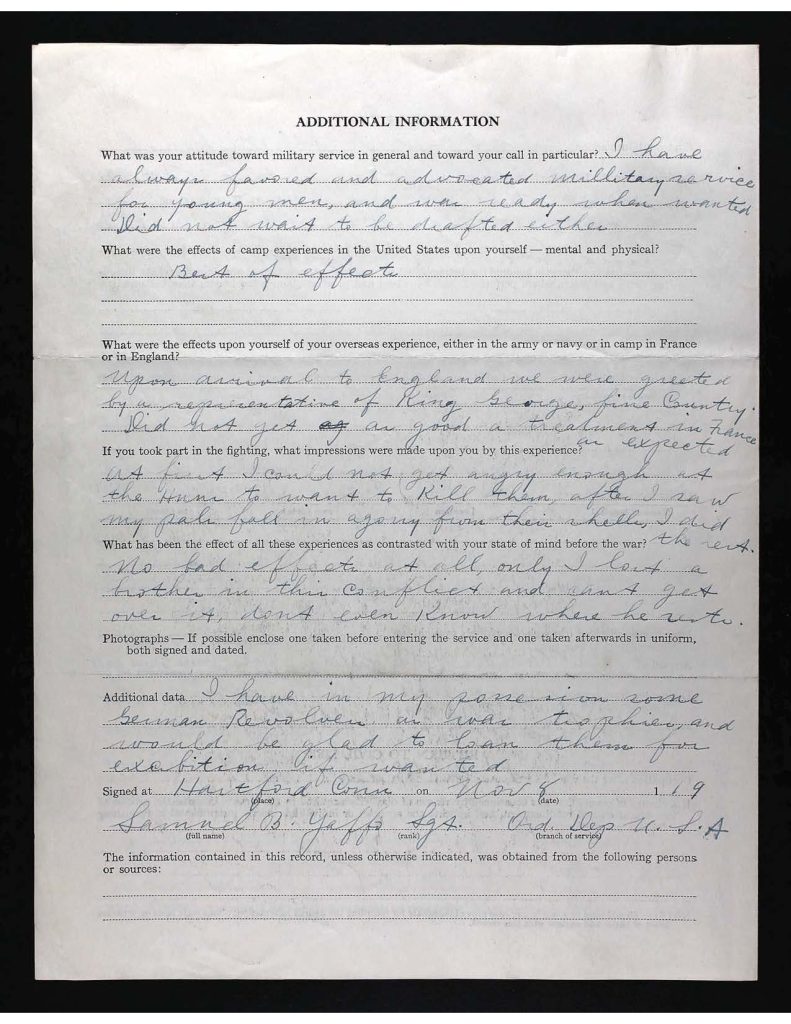 ADDITIONAL INFORMATION
What was your attitude toward military service in general and toward your call in particular? I have
always favored and advocated millitary service
for young men, and was ready when wanted
Did not wait to be drafted either
What were the effects of camp experiences in the United States upon yourself — mental and physical?
Best of effects
What were the effects upon yourself of your overseas experience, either in the army or navy or in camp in France
or in England?
Upon arrival to England we were greeted
by a representative of King George, fine Country.
Did not get as good a treatment in France
as expected
If you took part in the fighting, what impressions were made upon you by this experience?
At first I could not get angry enough at
the Huns to want to Kill them, after I saw
my pals fall in agony from their shells, I did
the rest.
What has been the effect of all these experiences as contrasted with your state of mind before the war?
No bad effects at all, only I lost a
brother in this Conflict and cant get
over it, dont even Know where he rests.
Photographs — If possible enclose one taken before entering the service and one taken afterwards in uniform,
both signed and dated.
Additional data I have in my possession some
German Revolvers as war trophies, and
would be glad to loan them for
exebition if wanted
Signed at Hartford Conn on Nov 8 1 19
(place) (date)
Samuel B. Yaffe Sgt. Ord. Dep U. S. A
(full name) (rank) (branch of service)
The information contained in this record, unless otherwise indicated, was obtained from the following persons
or sources: